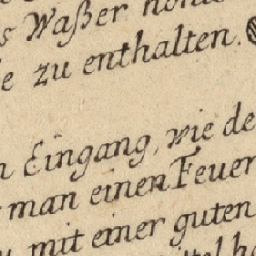 s Waßer
e zu enthalten.
n Eingang, wie de
man einen Feuer
mit einer guten